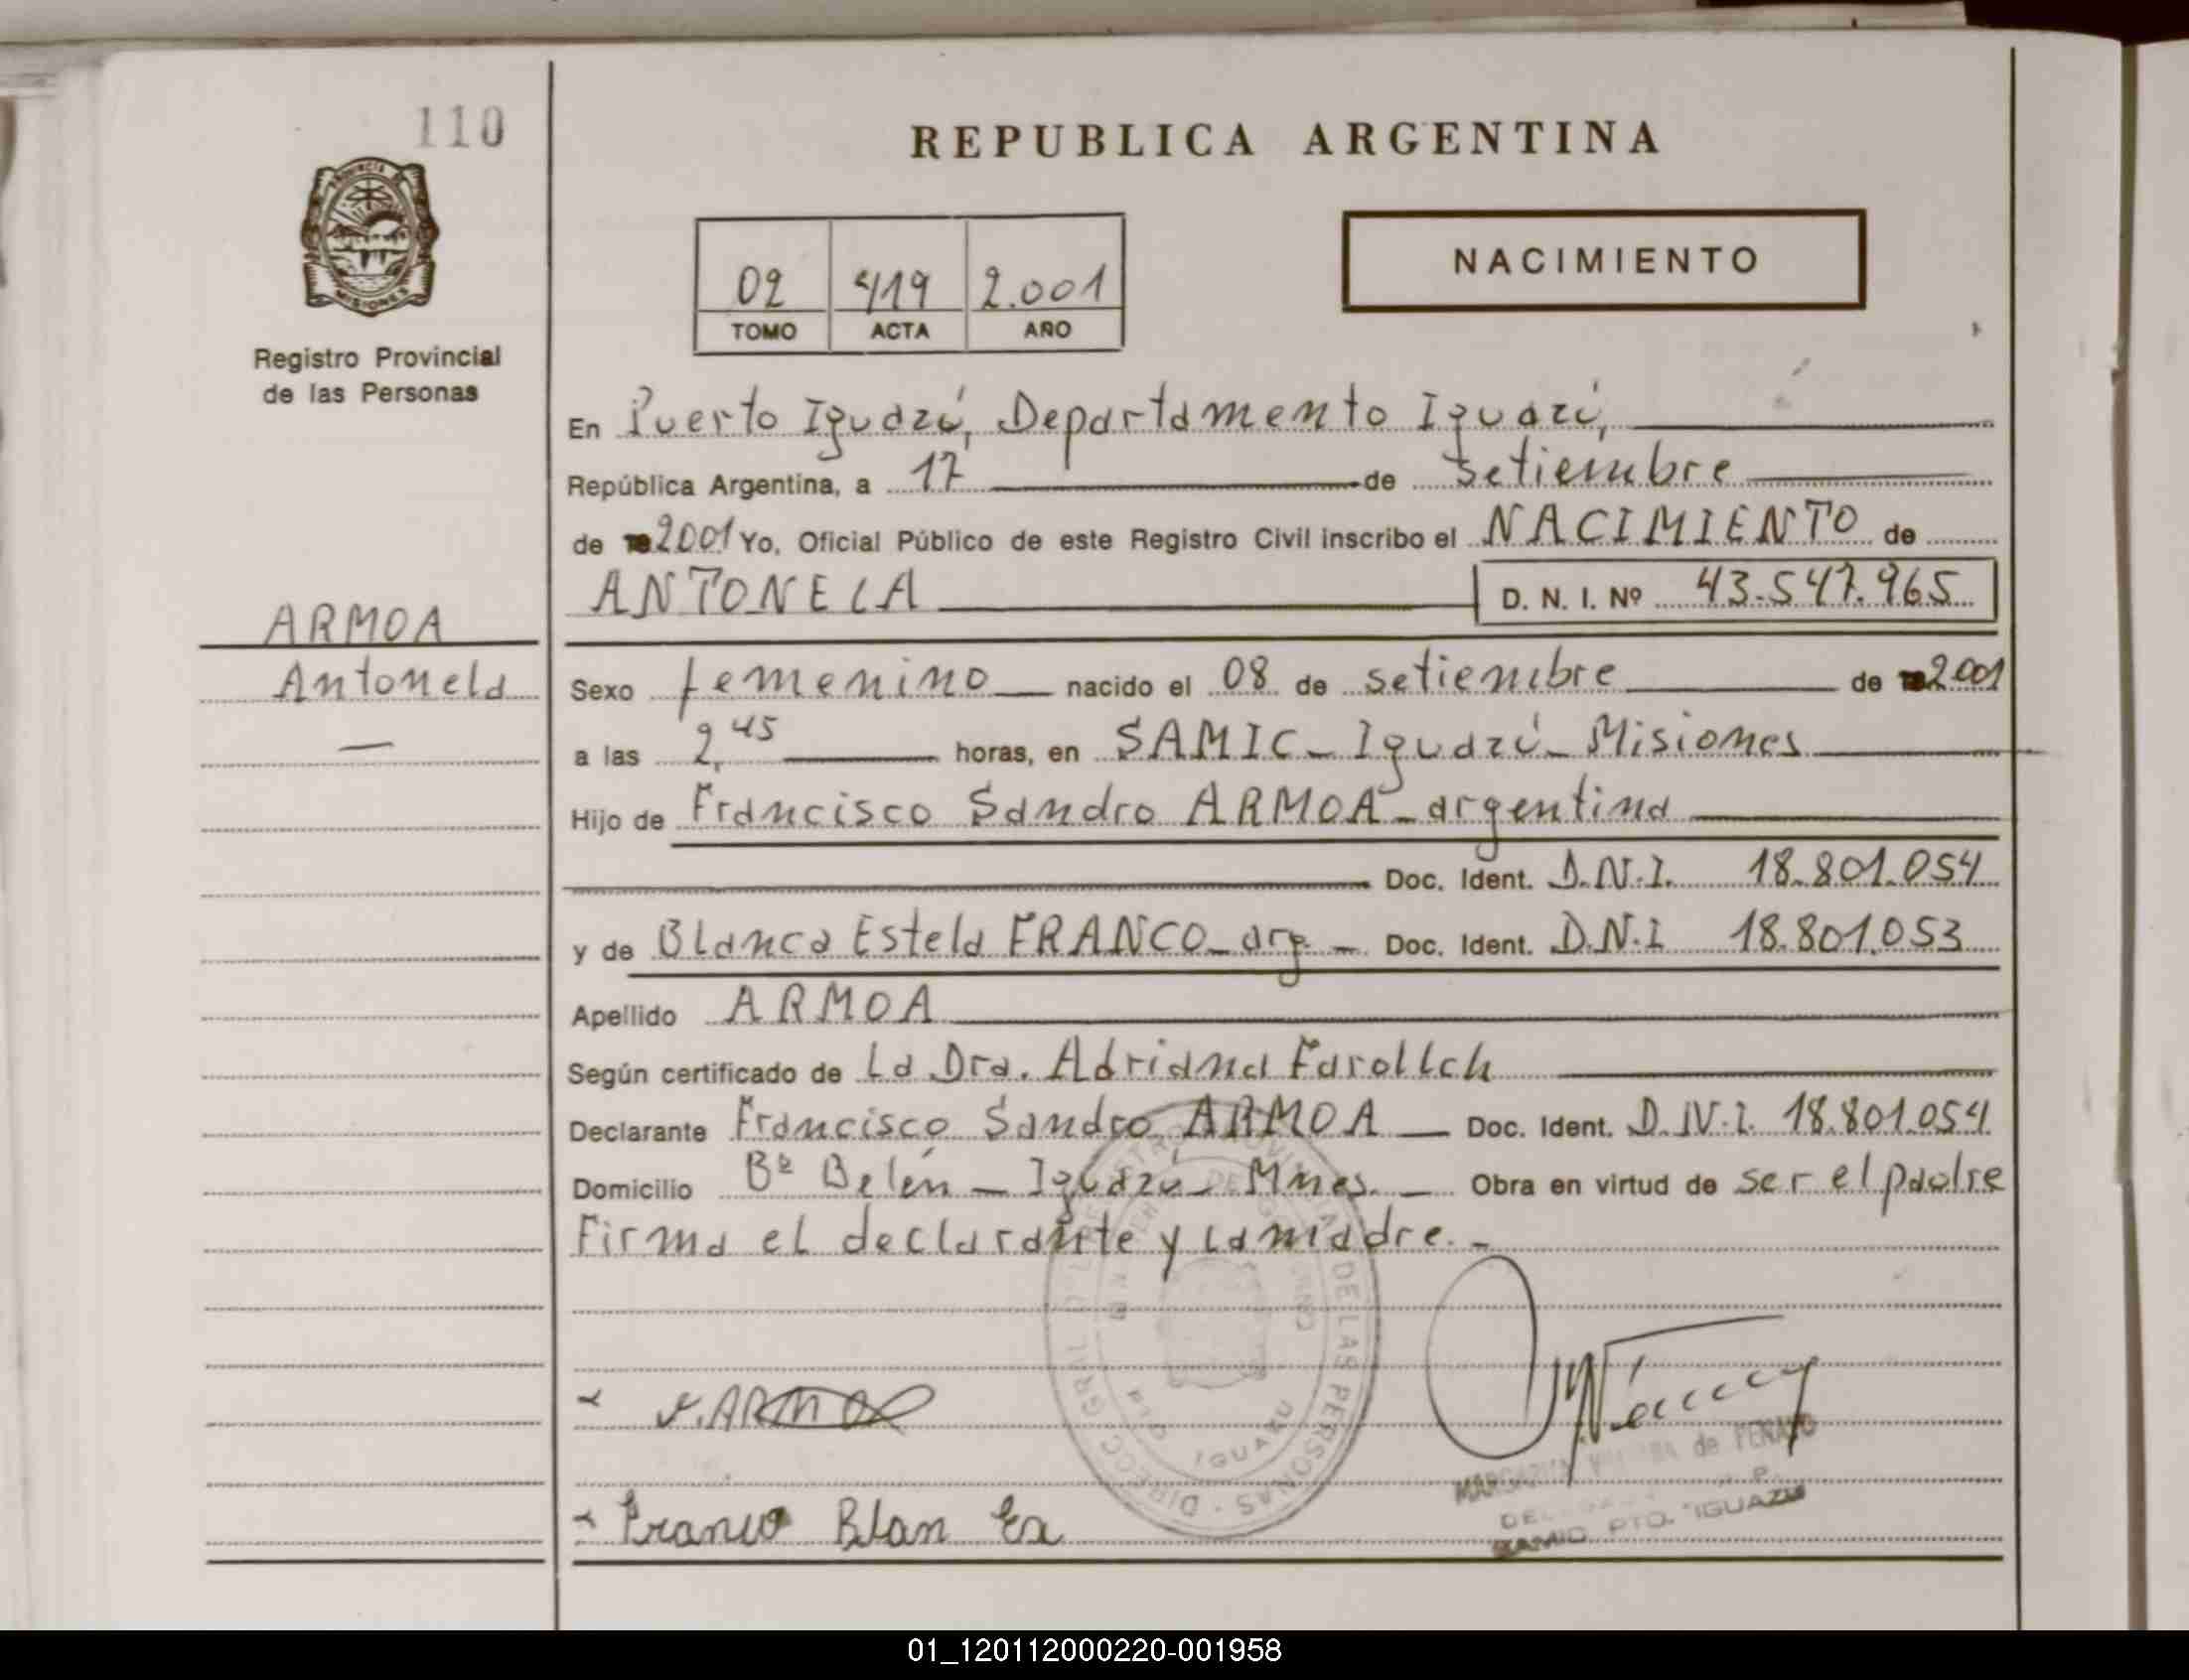 110
REPUBLICA ARGENTINA
PROVINCIA DE
MISIONES
Registro Provincial
de las Personas
02 419 2.001
TOMO ACTA AÑO
NACIMIENTO
En Puerto Iguazú, Departamento Iguazú,
República Argentina, a 17 de setiembre
de 2001 Yo, Oficial Público de este Registro Civil inscribo el NACIMIENTO de
ANTONELA D. N. I. Nº 43.547.965
ARMOA
Antonela
Sexo femenino nacido el 08 de setiembre de 2001
a las 2,45 horas, en SAMIC - Iguazú - Misiones
Hijo de Francisco Sandro ARMOA - argentina
Doc. Ident. D.N.I. 18.801.054
y de Blanca Estela FRANCO - arg - Doc. Ident. D.N.I 18.801.053
Apellido ARMOA
Según certificado de La Dra. Adriana
Declarante Francisco Sandro ARMOA - Doc. Ident. D.N.I. 18.801.054
Domicilio Bº Belén - Iguazú - Mnes. - Obra en virtud de ser el padre
Firma el declarante y la madre. -
DE LAS PERSONAS
IGUAZU
ARMOA
Franco Blan
de
PTO. IGUAZU
01_120112000220-001958